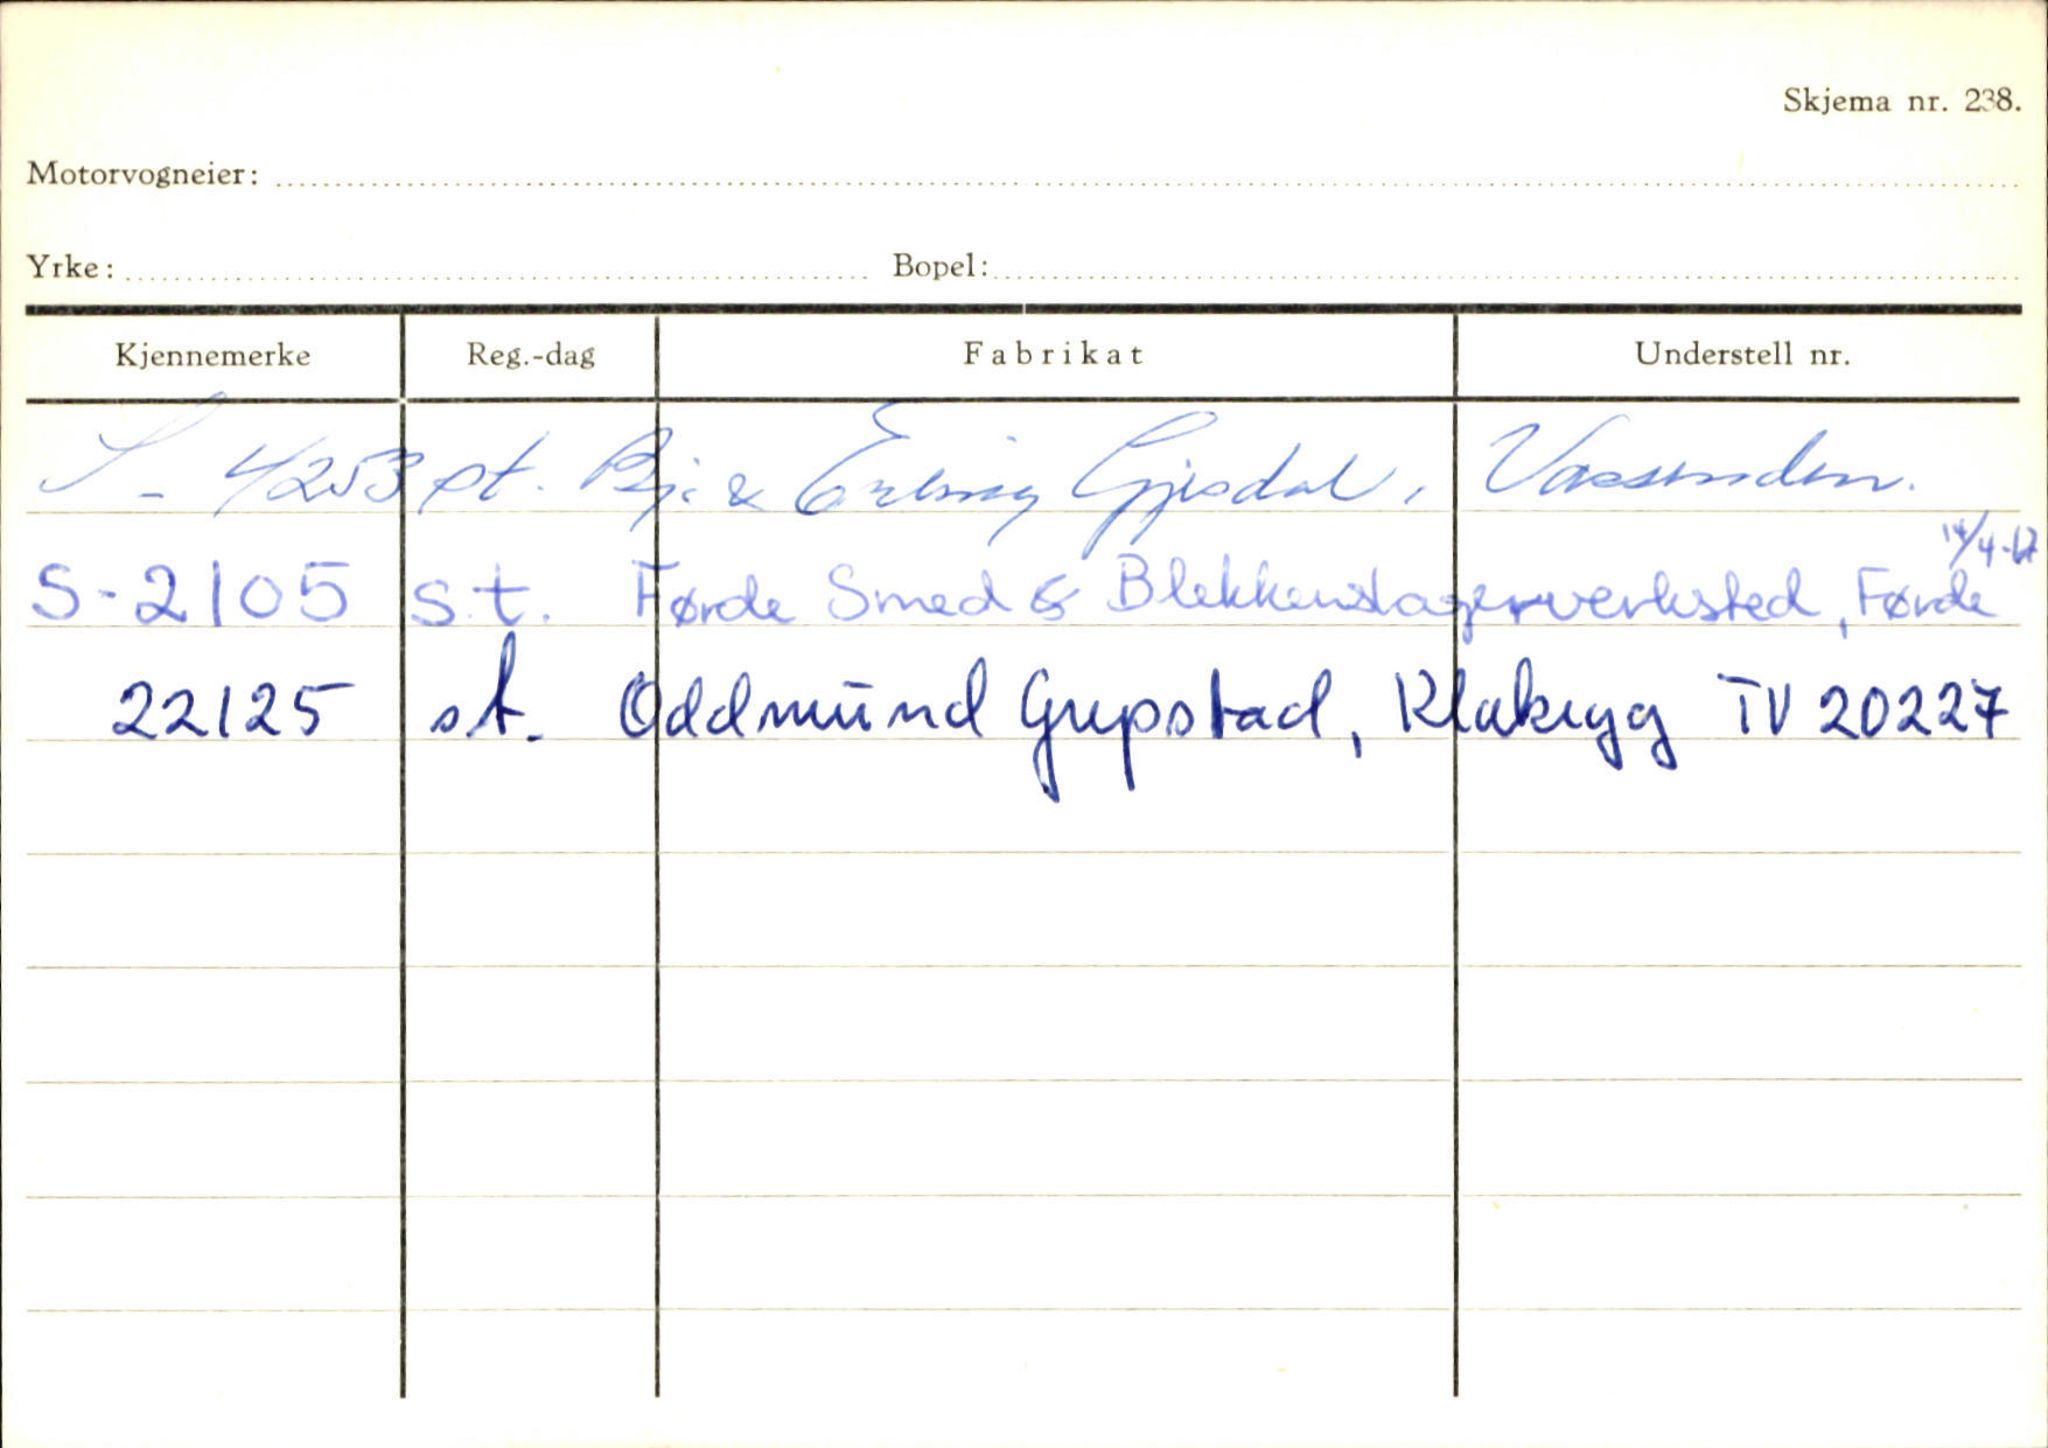 Skjema nr. 238.
Motorvogneier:
Yrke: Bopel:
Kjennemerke Reg.-dag Fabrikat Understell nr.
S-4253 st. & Erling Gjesdal, Vassenden.
14/4-67
S-2105 s.t. Førde Smed & Blekkenslagerverksted, Førde
22125 st. Oddmund Grepstad, Klakegg TV 20227